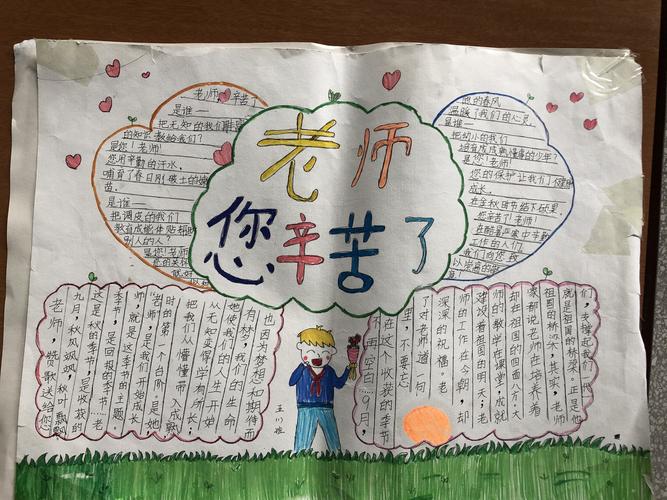 老师
您辛苦了
老师,辛苦了
是谁——
把无知的我们
的知识教给我们?
是您!老师!
您用辛勤的汗水,
哺育了春日刚破土的嫩
苗。
是谁——
把调皮的我们
教育成能体贴帮助
别人的人?
是您!老师
的春风
温暖了我们的心灵,
是谁—
把幼小的我们
培育成成熟懂事的少年?
是您!老师!
您的保护让我们健康
成长。
在金秋时节结下硕果。
您辛苦了!老师!
在酷暑严寒中辛勤
工作的人们。
我们向您致
以崇高的敬
意!
老师,赞歌送给您
九月,秋风飒飒,秋叶飘飘
这是秋的季节,是收获的
季节,是回报的季节…老
师,就是这季节的主题。
“老师”,是我们开始成长
时的第一个台阶。是她
把我们从懵懂带入成熟
从无知变得学有所长;
她使我们的人生开始
有梦,我们的生命
也因为梦想和期待而
不再空白(9月,
在这个收获的季节
里,不要忘
了对老师道一句
深深的祝福:老
师的工作在今朝,却
建设着祖国的明天;老
师的教学在课堂,成就
却在祖国的四面八方。大
家都说老师在培养着
祖国的桥梁,其实,老师
就是祖国的桥梁。正是他
们,支撑起我们